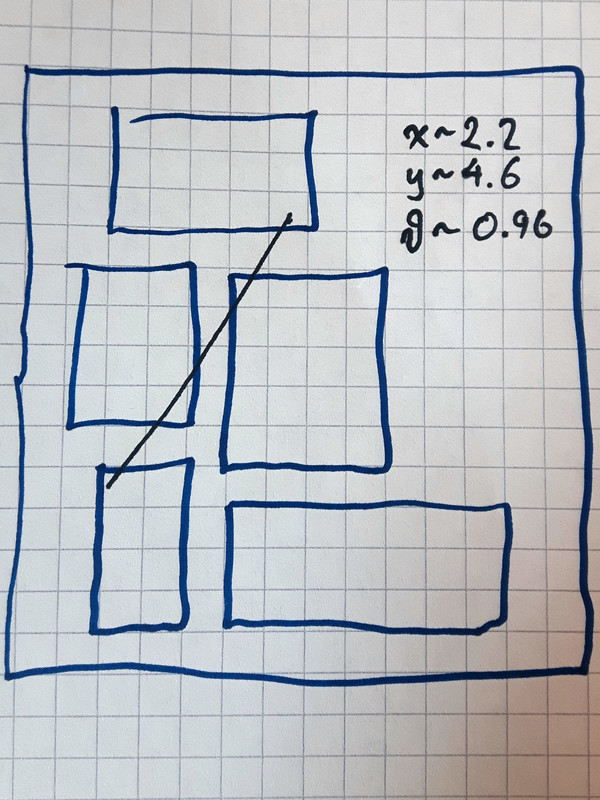 x~2.2
y~4.6
ϑ~0.96